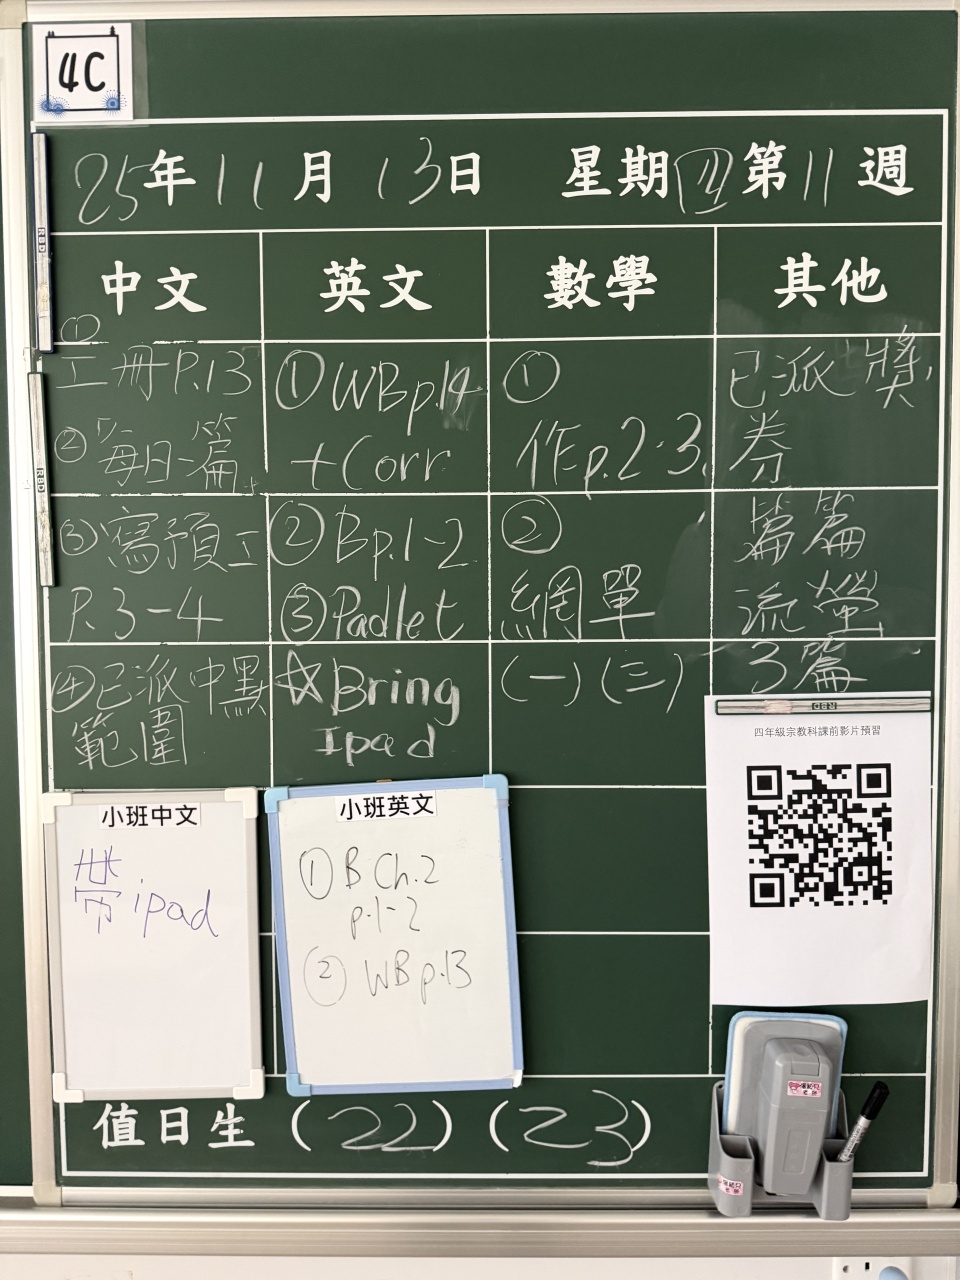 4C
25年11月13日 星期四第11週
中文 英文 數學 其他
①
工冊P.13
②每日一篇
③寫預工
P.3-4
④已派中默
範圍
①WBp.14
+Corr
②Bp.1-2
③Padlet
☆Bring
Ipad
①
作p.2-3
②
網單
(一)(三)
已派獎
券
篇篇
流螢
3篇
四年級宗教科課前影片預習
小班中文
帶ipad
小班英文
①B Ch.2
p.1-2
②WBp.13
值日生(22)(23)
RBD
RBD
RBD